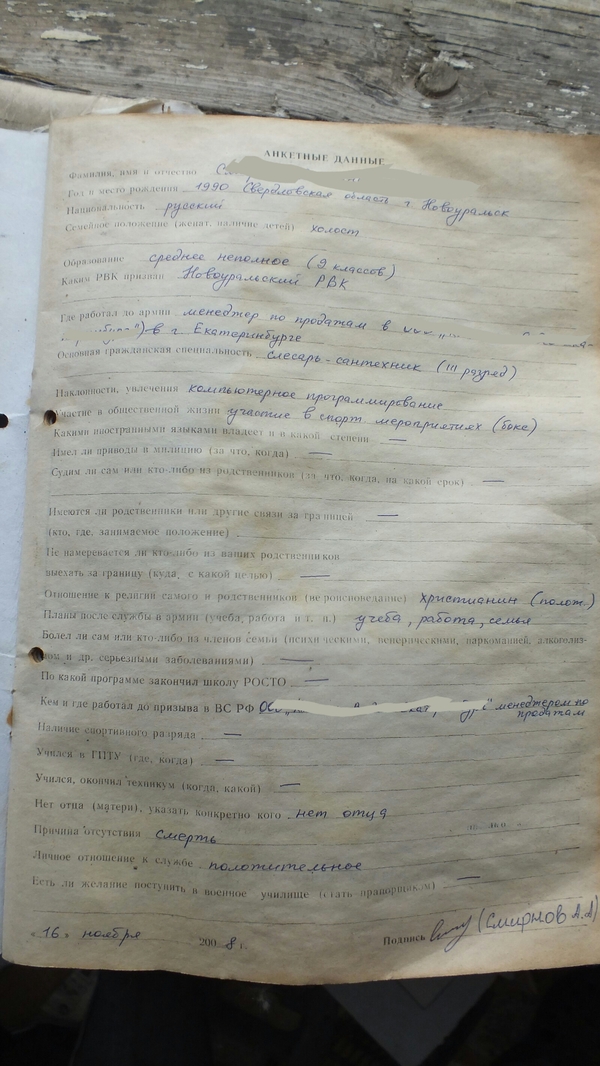 АНКЕТНЫЕ ДАННЫЕ
Фамилия, имя и отчество
Год и место рождения 1990 Свердловская область г Новоуральск
Национальность русский
Семейное положение (женат, наличие детей) холост
Образование среднее неполное (9 классов)
Каким РВК призван Новоуральский РВК
Где работал до армии менеджер по продажам в
в г. Екатеринбурге
Основная гражданская специальность слесарь-сантехник (III разряд)
Наклонности, увлечения компьютерное программирование
Участие в общественной жизни участие в спорт мероприятиях (бокс)
Какими иностранными языками владеет и в какой степени —
Имел ли приводы в милицию (за что, когда) —
Судим ли сам или кто-либо из родственников (за что, когда, на какой срок) —
Имеются ли родственники или другие связи за границей —
(кто, где, занимаемое положение)
Не намеревается ли кто-либо из ваших родственников
выехать за границу (куда, с какой целью) —
Отношение к религии самого и родственников (вероисповедание) христианин (полож.)
Планы после службы в армии (учеба, работа и т. п.) учеба, работа, семья
Болел ли сам или кто-либо из членов семьи (психическими, венерическими, наркоманией, алкоголиз-
мом и др. серьезными заболеваниями) —
По какой программе закончил школу РОСТО —
Кем и где работал до призыва в ВС РФ менеджером по
продажам
Наличие спортивного разряда —
Учился в ГПТУ (где, когда) —
Учился, окончил техникум (когда, какой) —
Нет отца (матери), указать конкретно кого нет отца
Причина отсутствия смерть
Личное отношение к службе положительное
Есть ли желание поступить в военное училище (стать прапорщиком) —
«16» ноября 2008 г. Подпись (Смирнов А.А)